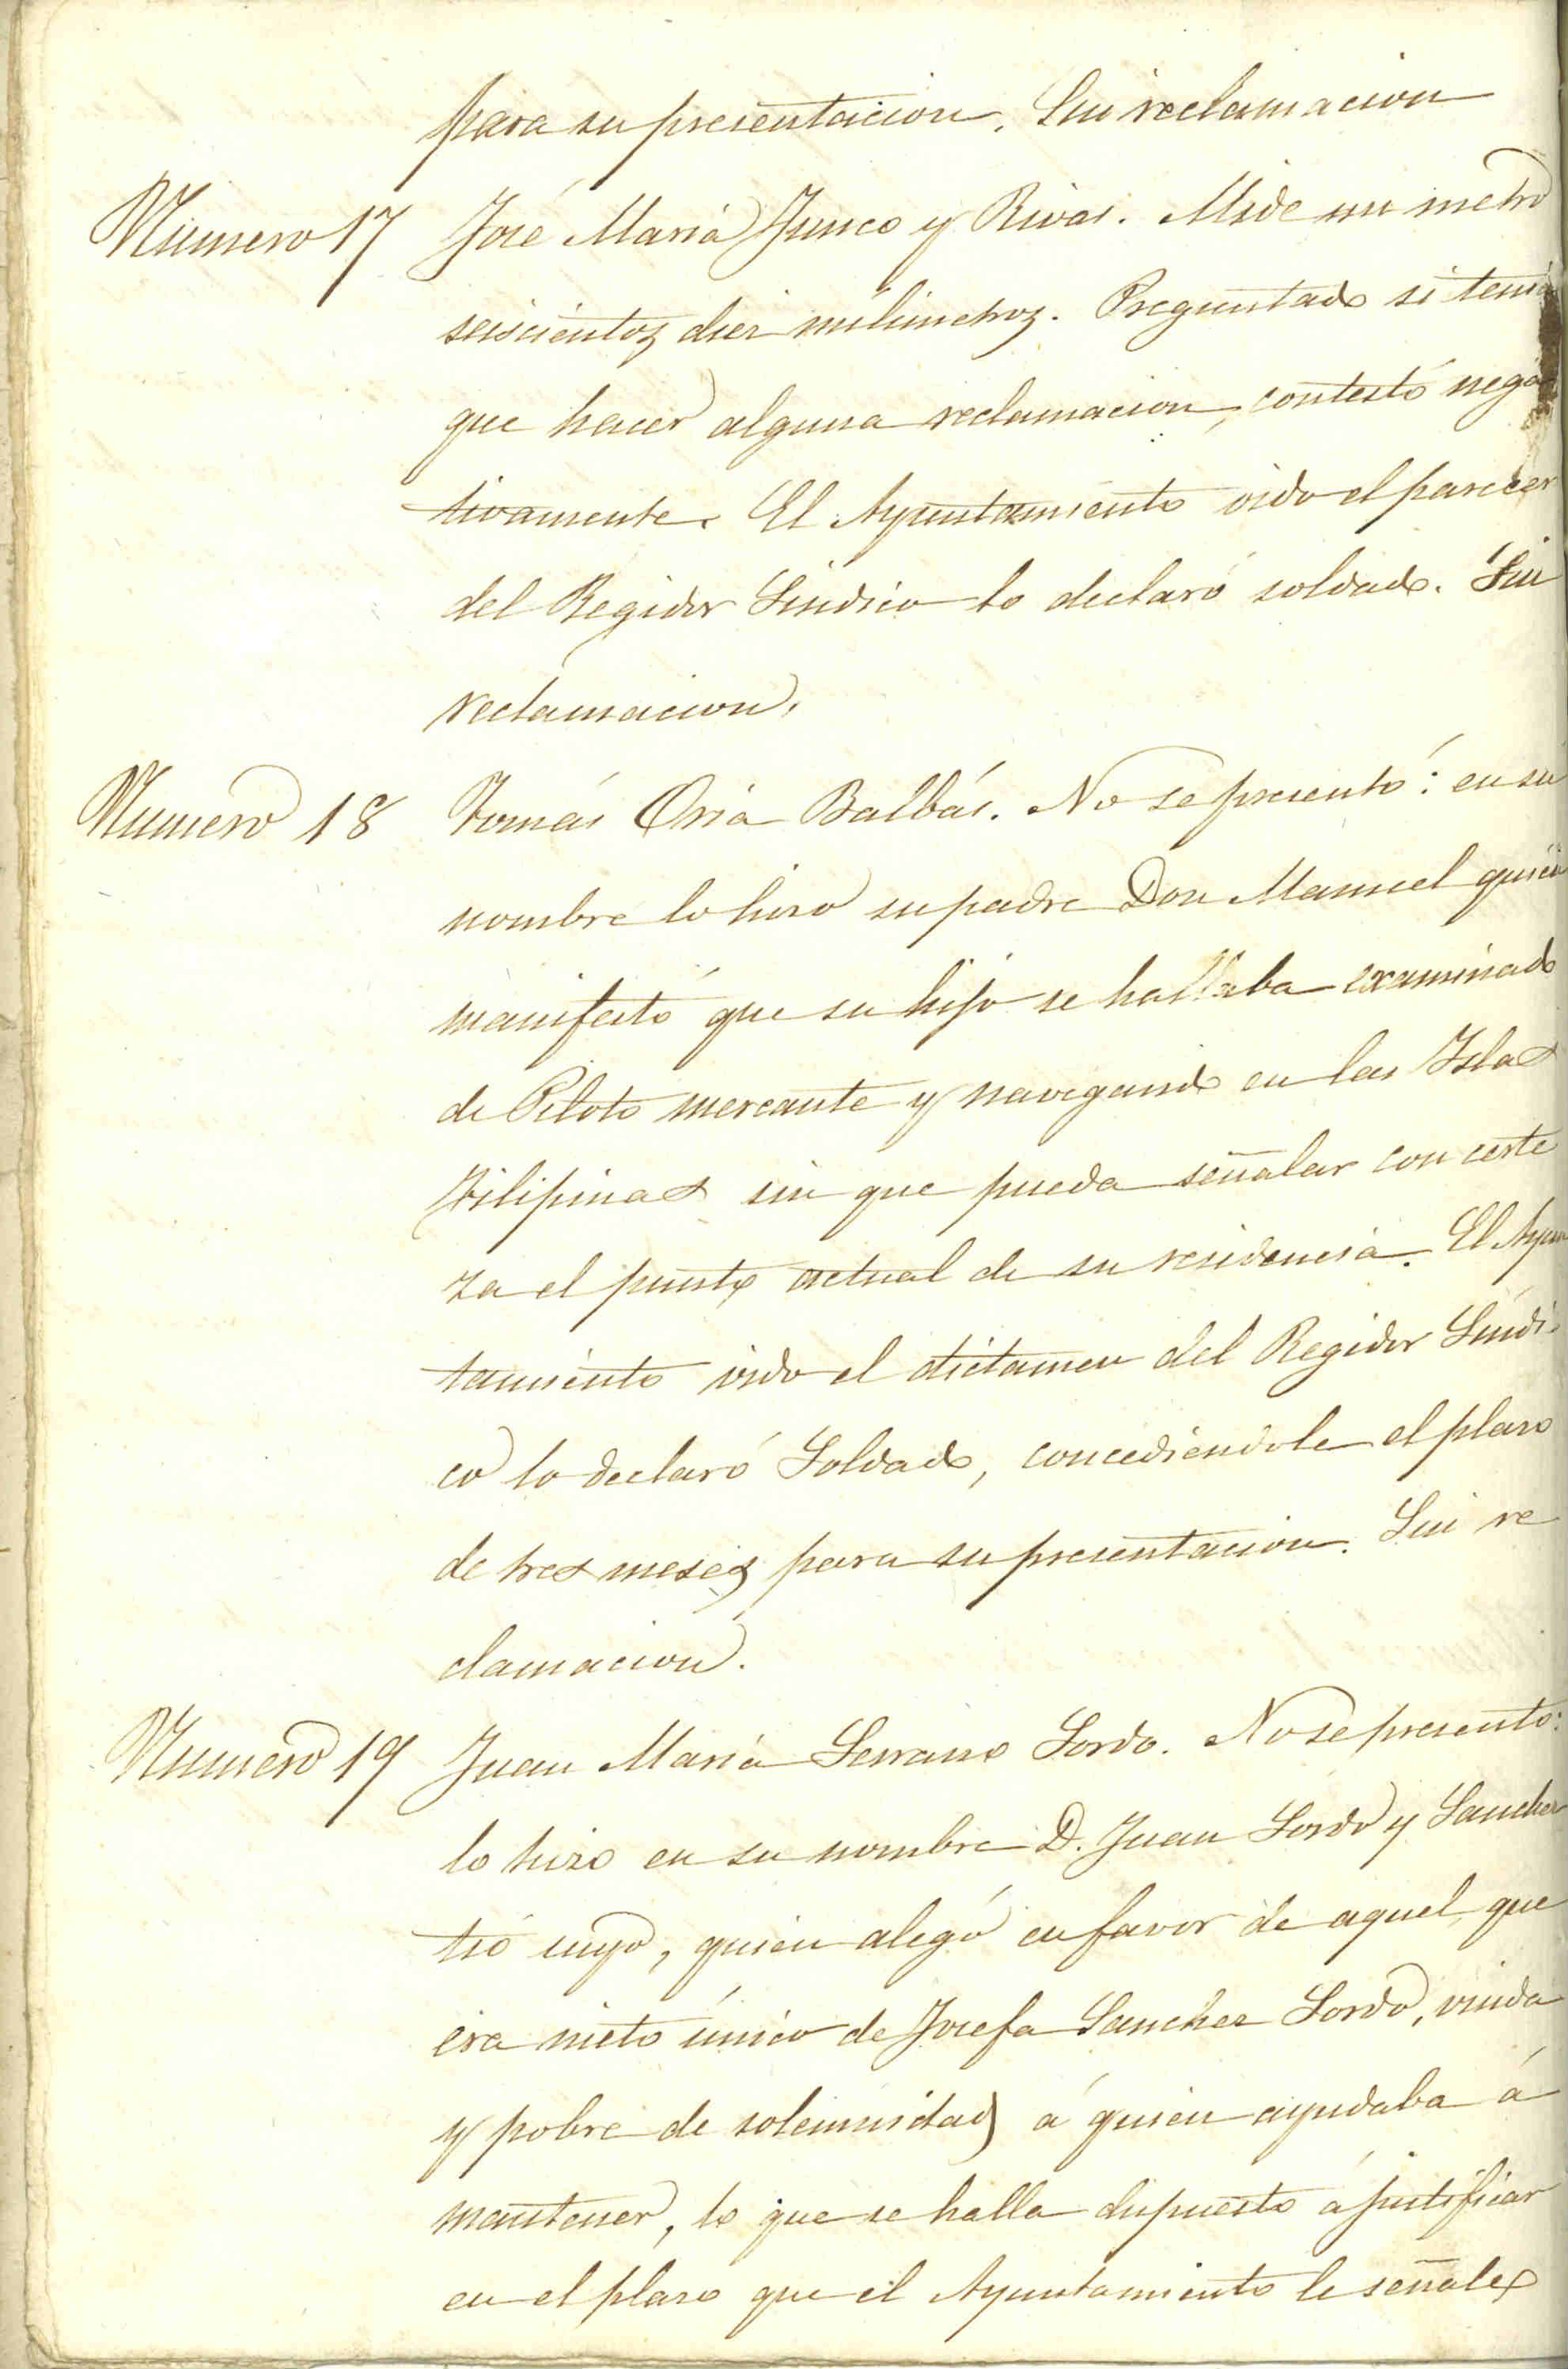 para su presentacion. Sin reclamacion
Número 17 José María Junco y Rivas. Mide un metro
seiscientos diez milimetros. Preguntado si tenia
que hacer alguna reclamacion, contestó nega
tivamente. El Ayuntamiento oido el parecer
del Regidor Síndico lo declaró soldado. Sin
reclamacion.
Numero 18 Tomás Oria Balbás. No se presentó: en su
nombre lo hizo su padre Don Manuel quien
manifestó que su hijo se hallaba examinado
de Piloto mercante y navegando en las Islas
Filipinas sin que pueda señalar con certe
za el punto actual de su residencia. El Ayun
tamiento oido el dictamen del Regidor Síndi
co lo declaró Soldado, concediendole el plazo
de tres meses para su presentacion. Sin re
clamacion.
Numero 19 Juan María Serrano Sordo. No se presentó:
lo hizo en su nombre D. Juan Sordo y Sanchez
tio suyo, quien alegó en favor de aquel que
era nieto único de Josefa Sanchez Sordo, viuda
y pobre de solemnidad á quien ayudaba á
mantener, lo que se halla dispuesto á justificar
en el plazo que el Ayuntamiento le señale